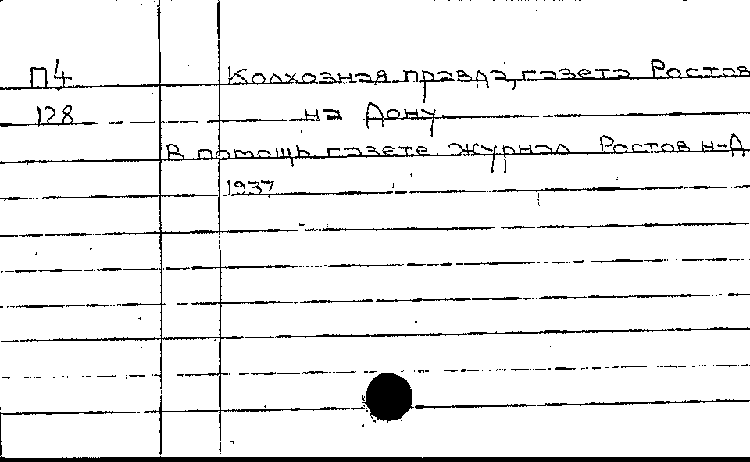 П4 Колхозная правда, газета Ростов
128 на Дону
В помощь газете журнал Ростов н-Д
1937